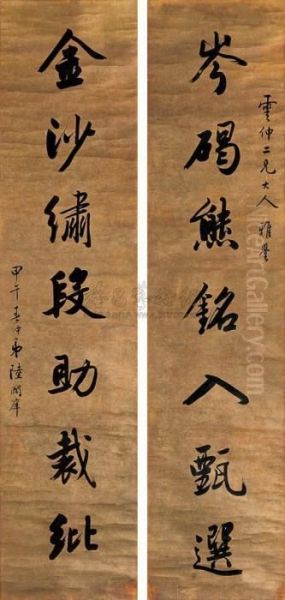 雲仲二兄大人 雅鑒
岑碣熊銘入甄選
金沙繡段助裁紕
甲午春中弟陸潤庠